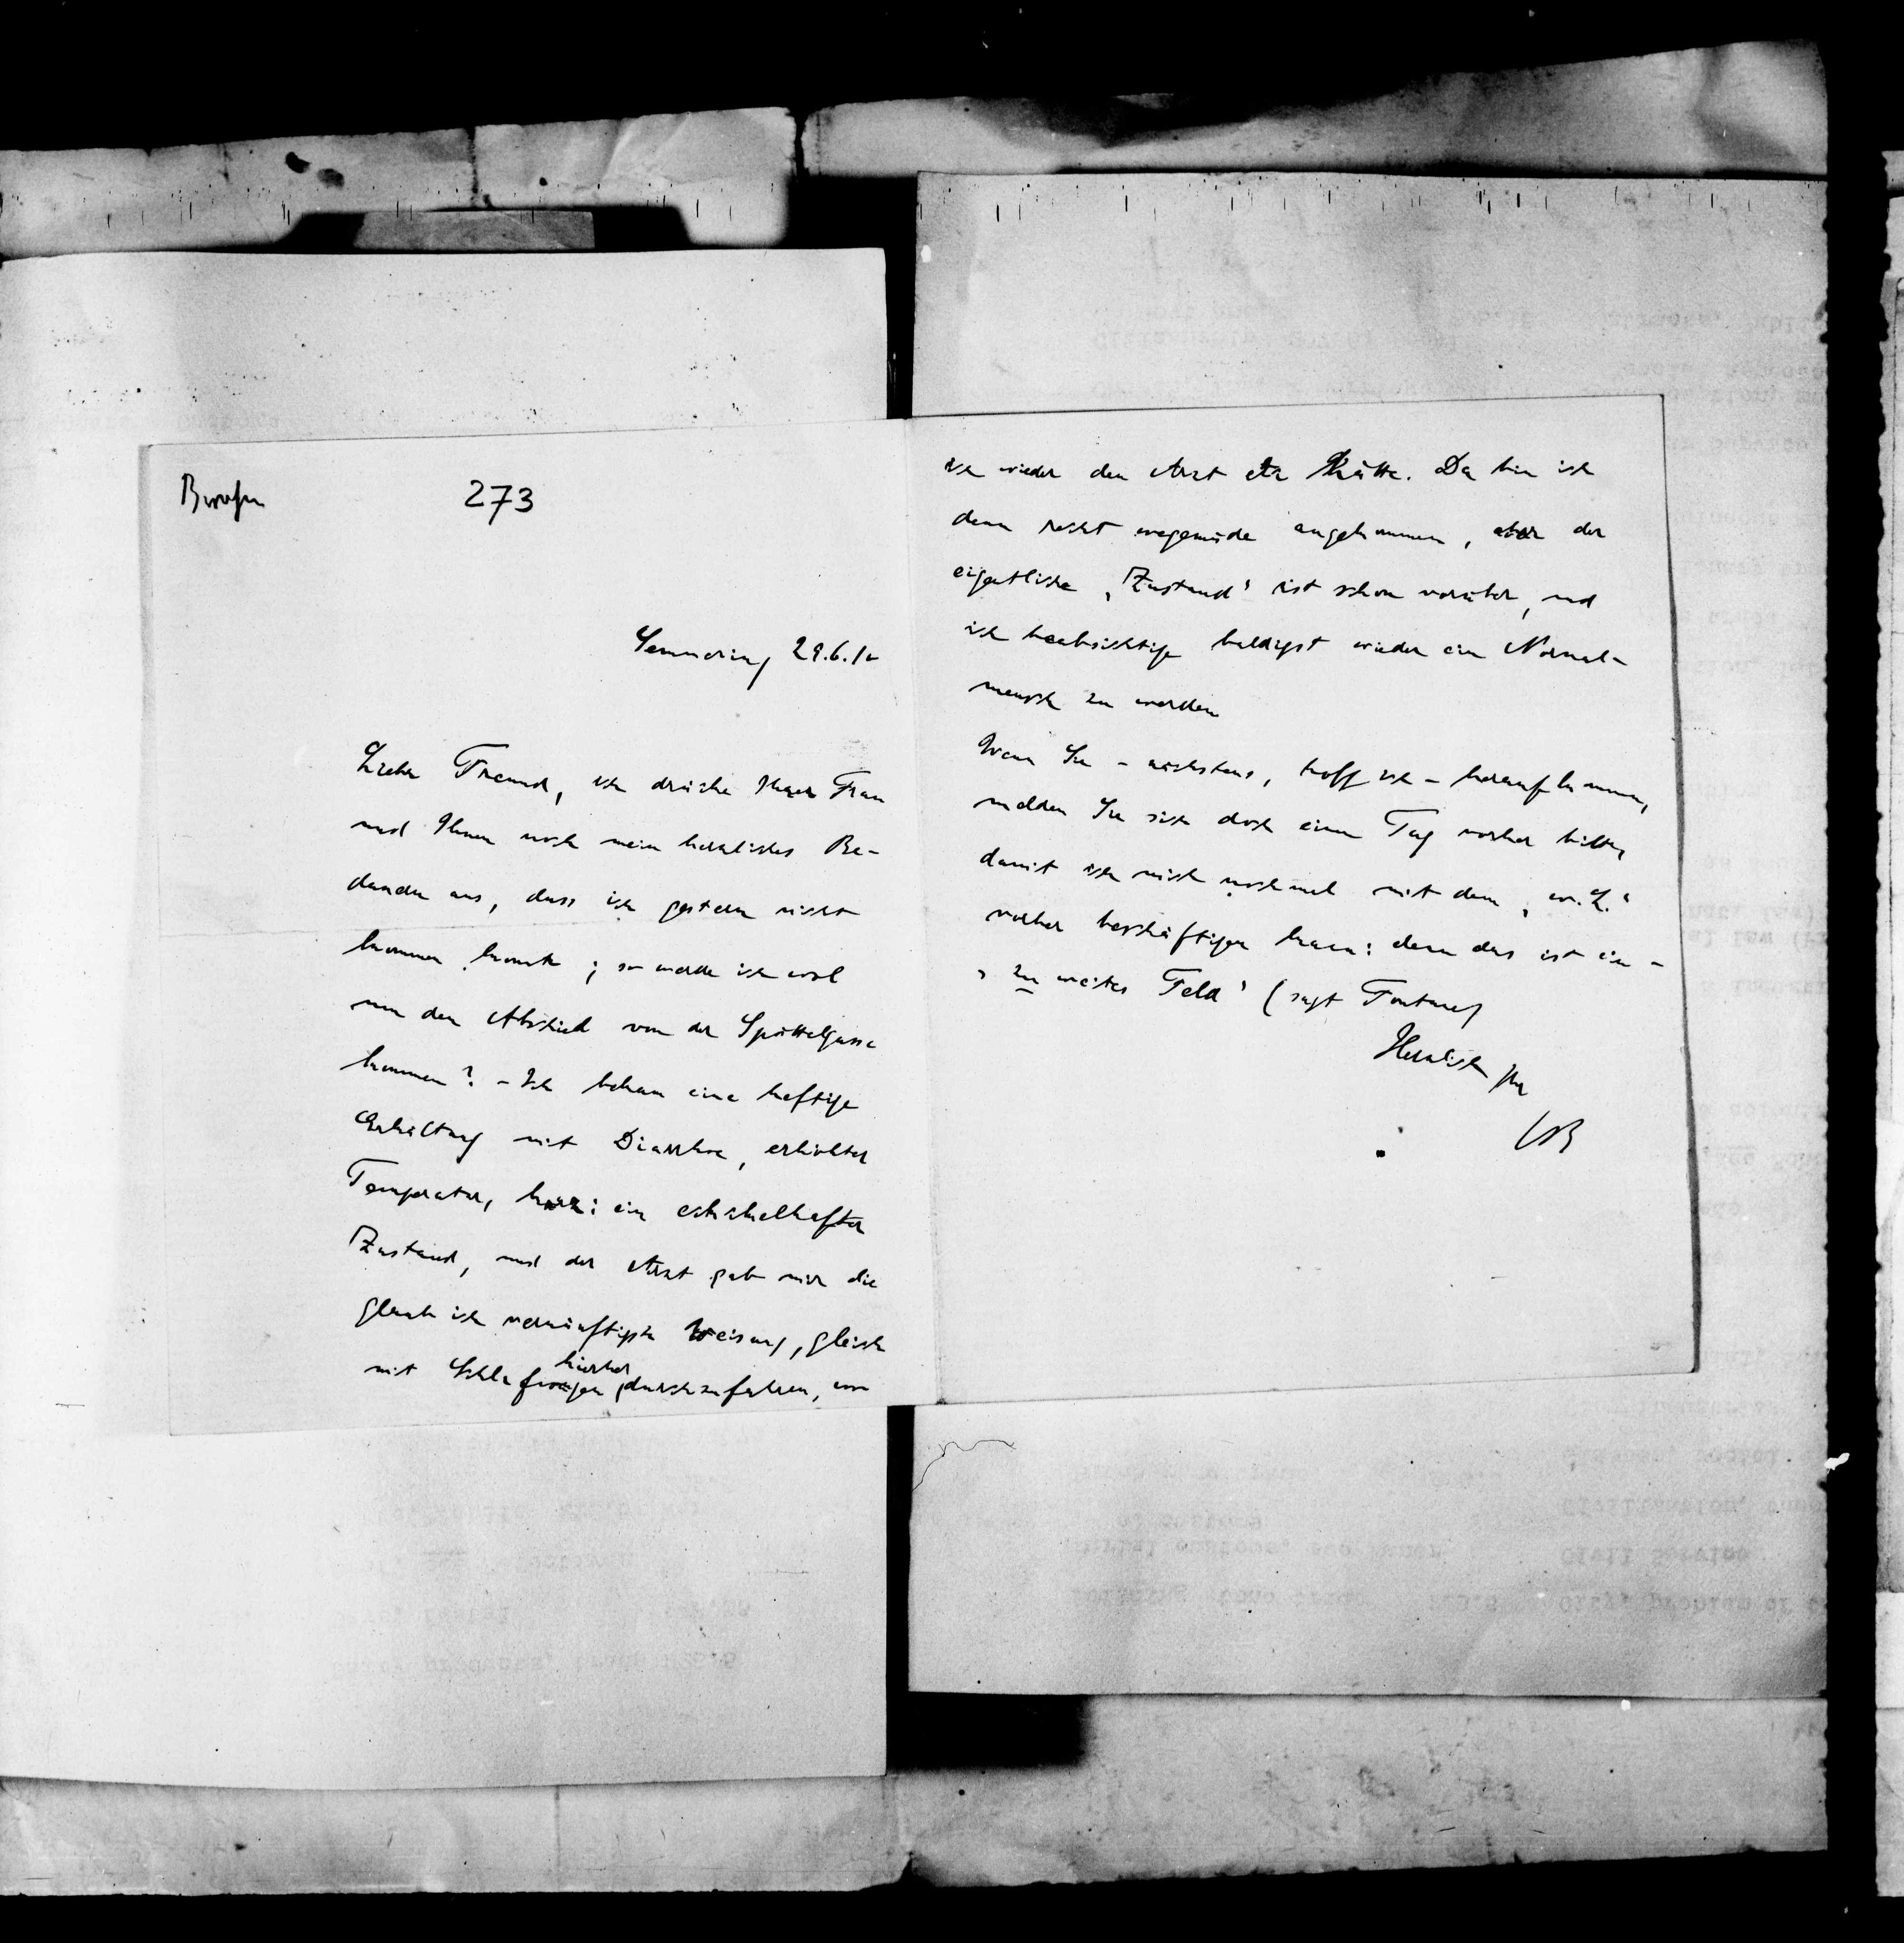 273
Semmering 29.6.12
Lieber Freund, ich drücke Ihrer Frau
und Ihnen noch mein herzliches Be-
dauern aus, dass ich gestern nicht
kommen konnte; so werde ich wol
um den Abschied von der Spöttelgasse
kommen? – Ich bekam eine heftige
Erkältung mit Diarrhoe, erhöhter
Temperatur, kurz: ein ekelhafter
Zustand, und der Arzt gab mir die
glaub ich vernünftigste Weisung, gleich
mit Schlafwagen hierher durchzufahren, wo
ich wieder den Arzt etz hätte. Da bin ich
denn recht wegemüde angekommen, aber der
eigentliche „Zustand“ ist schon vorüber, und
ich beabsichtige baldigst wieder ein Normal-
mensch zu werden
Wenn Sie – nächstens, hoff ich – heraufkommen,
melden Sie sich doch einen Tag vorher bitte,
damit ich mich nochmal mit dem „w. L.“
vorher beschäftigen kann: denn das ist ein –
„zu weites Feld“ (sagt Fontane)
Herzlich Ihr